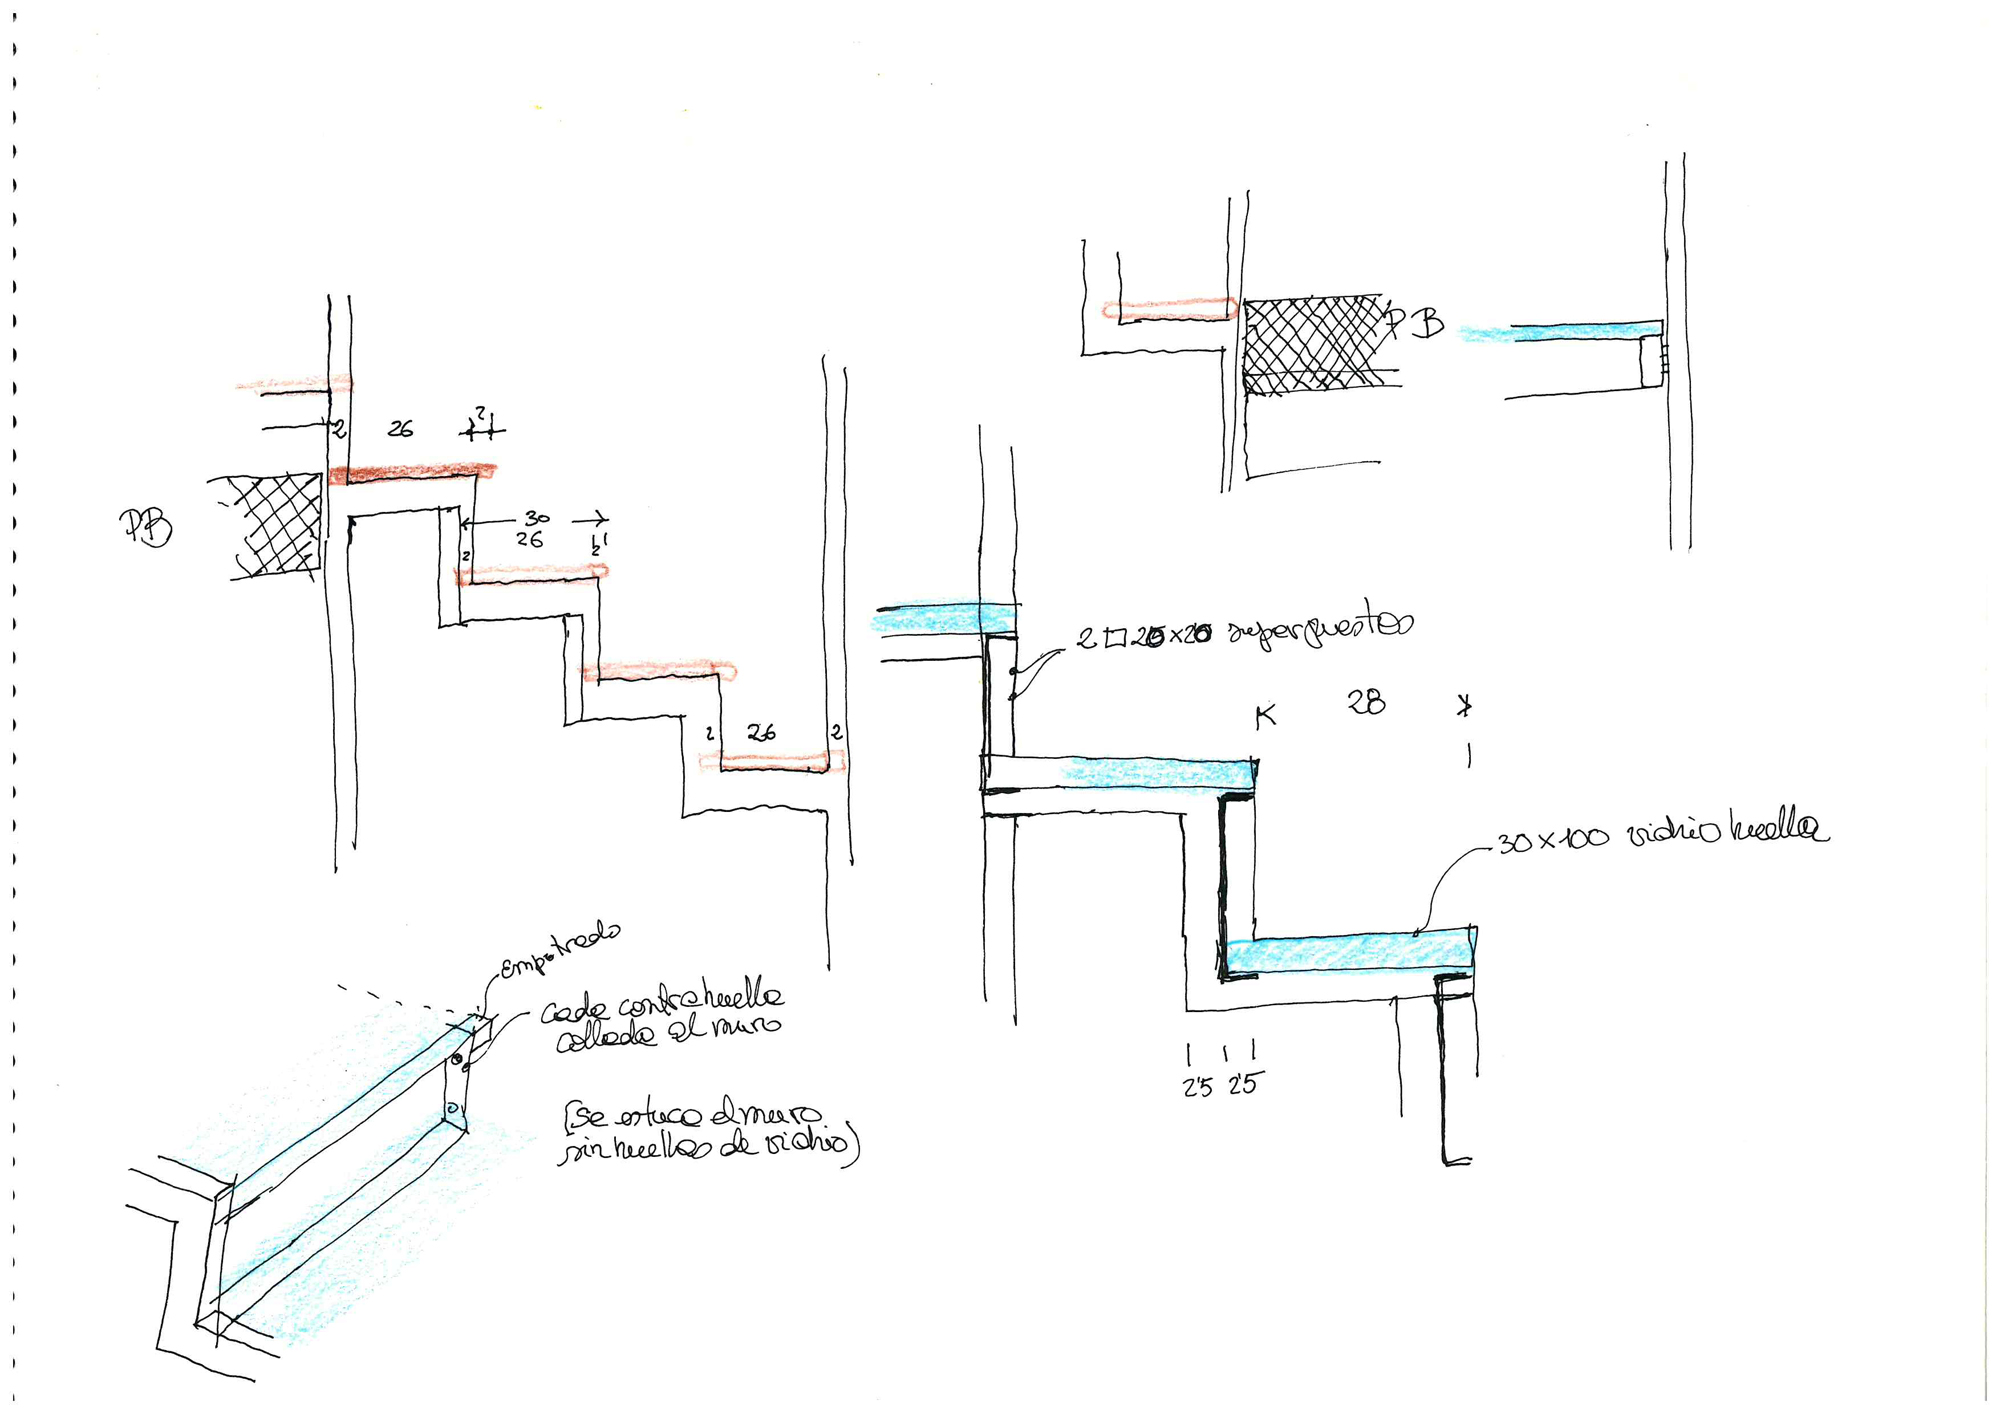 2
26
2
PB
30
26
2
2
2
26
2
PB
2 □ 20×20 superpuestos
28
30×100 vidrio huella
2'5 2'5
Empotrado
Cada contrahuella
collada al muro
(Se estuca el muro
sin huellas de vidrio)